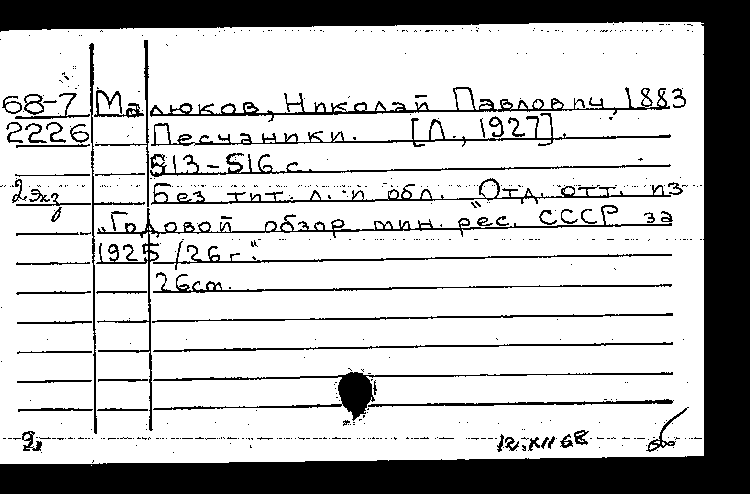 68-7 Малюков, Николай Павлович, 1883
2226 Песчаники. [Л., 1927].
513-516 с.
2 экз Без тит. л. и обл. "Отд. отт. из
"Годовой обзор мин. рес. СССР за
1925/26 г."
26cm.
12.XII 68